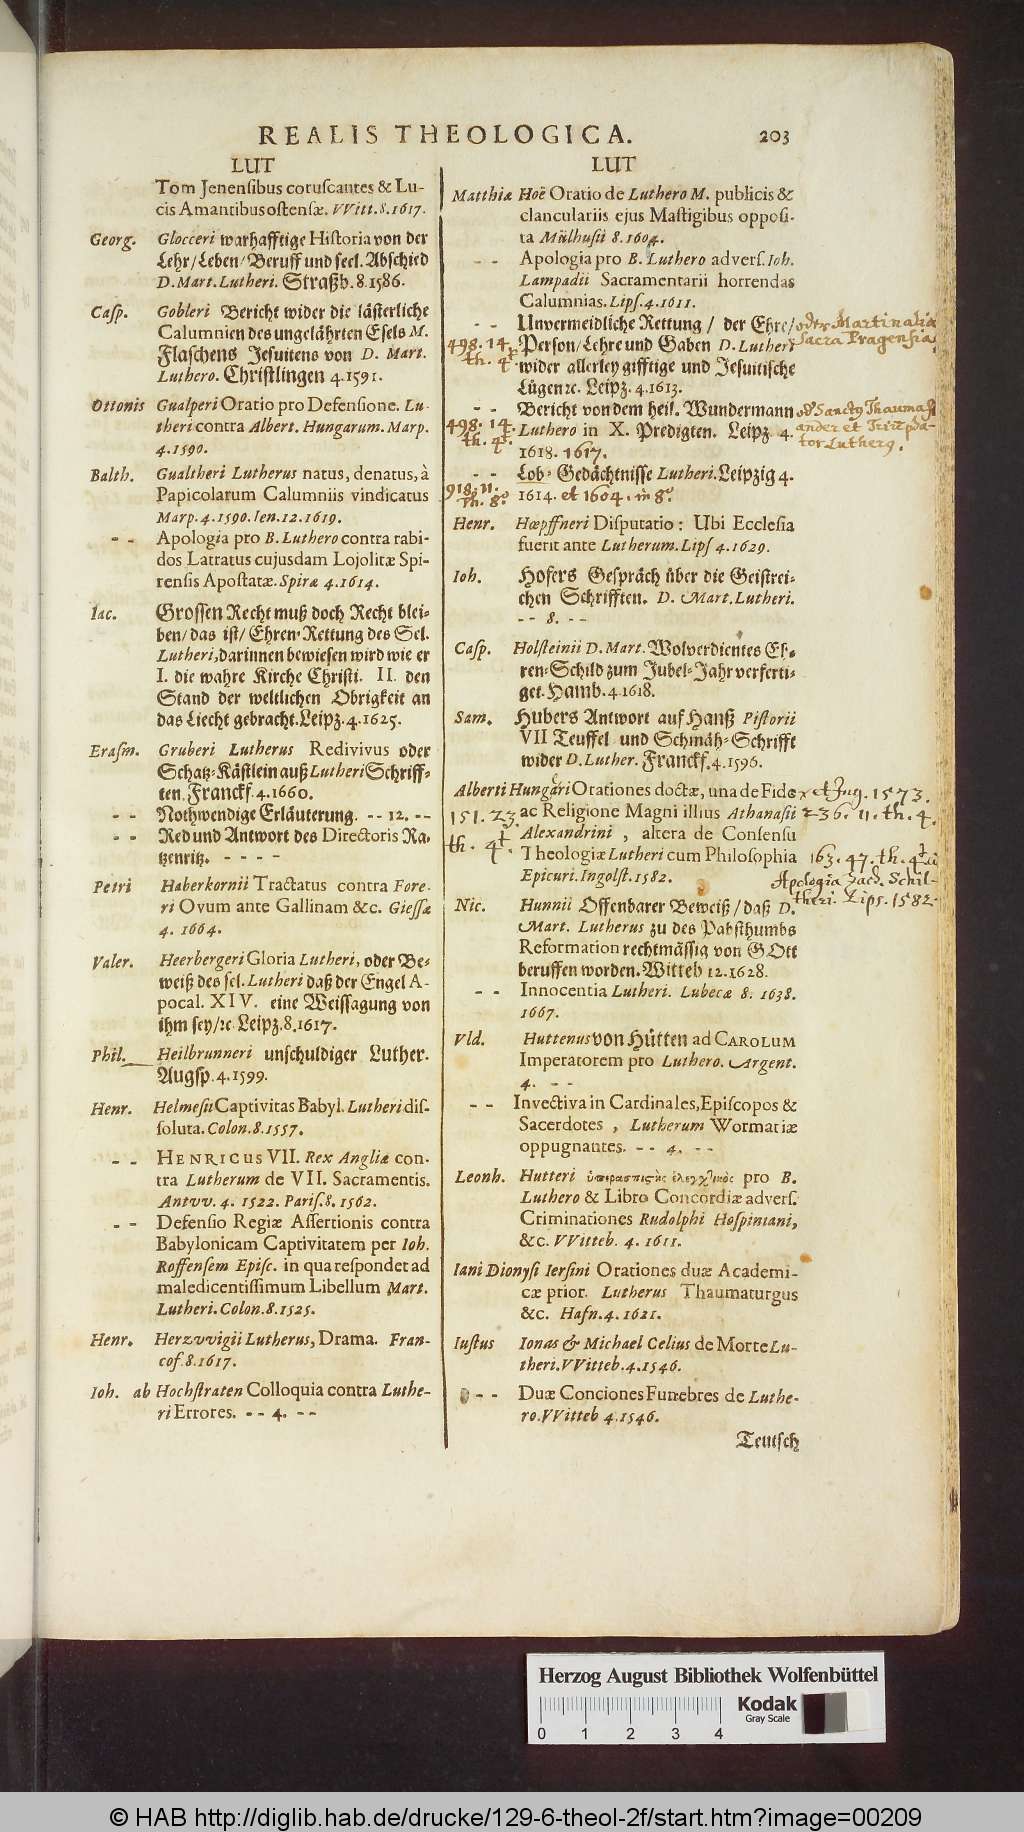 REALIS THEOLOGICA. 203
LUT
Tom Jenensibus coruscantes & Lu-
cis Amantibus ostensæ. VVitt. 8. 1617.
Georg. Glocceri warhafftige Historia von der
Lehr/Leben/Beruff und seel. Abschied
D. Mart. Lutheri. Straßb. 8. 1586.
Casp. Gobleri Bericht wider die lästerliche
Calumnien des ungelährten Esels M.
Flaschens Jesuitens von D. Mart.
Luthero. Christlingen 4. 1591.
Ottonis Gualperi Oratio pro Defensione. Lu-
theri contra Albert. Hungarum. Marp.
4. 1590.
Balth. Gualtheri Lutherus natus, denatus, à
Papicolarum Calumniis vindicatus
Marp. 4. 1590. Ien. 12. 1619.
- - Apologia pro B. Luthero contra rabi-
dos Latratus cujusdam Lojolitæ Spi-
rensis Apostatæ. Spiræ 4. 1614.
Iac. Grossen Recht muß doch Recht blei-
ben/ das ist/ Ehren-Rettung des Sel.
Lutheri, darinnen bewiesen wird wie er
I. die wahre Kirche Christi. II. den
Stand der weltlichen Obrigkeit an
das Liecht gebracht. Leipz. 4. 1625.
Erasm. Gruberi Lutherus Redivivus oder
Schatz-Kästlein auß Lutheri Schriff-
ten. Franckf. 4. 1660.
- - Nothwendige Erläuterung. - - 12. - -
- - Red und Antwort des Directoris Ra-
tzenritz. - - - -
Petri Haberkornii Tractatus contra Fore-
ri Ovum ante Gallinam &c. Giessæ
4. 1664.
Valer. Heerbergeri Gloria Lutheri, oder Be-
weiß des sel. Lutheri daß der Engel A-
pocal. XIV. eine Weissagung von
ihm sey/ꝛc. Leipz. 8. 1617.
Phil. Heilbrunneri unschuldiger Luther.
Augsp. 4. 1599.
Henr. Helmesii Captivitas Babyl. Lutheri dis-
soluta. Colon. 8. 1557.
- - HENRICUS VII. Rex Angliæ con-
tra Lutherum de VII. Sacramentis.
Antvv. 4. 1522. Paris. 8. 1562.
- - Defensio Regiæ Assertionis contra
Babylonicam Captivitatem per Ioh.
Roffensem Episc. in qua respondet ad
maledicentissimum Libellum Mart.
Lutheri. Colon. 8. 1525.
Henr. Herzvvigii Lutherus, Drama. Fran-
cof. 8. 1617.
Ioh. ab Hochstraten Colloquia contra Luthe-
ri Errores. - - 4. - -
LUT
Matthiæ Hoë Oratio de Luthero M. publicis &
clanculariis ejus Mastigibus opposi-
ta Mülhusii 8. 1604.
- - Apologia pro B. Luthero advers. Ioh.
Lampadii Sacramentarii horrendas
Calumnias. Lips. 4. 1611.
- - Unvermeidliche Rettung / der Ehre/ oder Martinalia
498. 14. Person/Lehre und Gaben D. Lutheri Sacra Pragensia.
th. 4t. wider allerley gifftige und Jesuitische
Lügen ꝛc. Leipz. 4. 1613.
- - Bericht von dem heil. Wundermann
498. 14. Luthero in X. Predigten. Leipz 4.
th. 4t. 1618. 1617.
tor Lutherg.
- - Lob-Gedächtnisse Lutheri. Leipzig 4.
918. 11. Th. 8o 1614. et 1604. in 8o
Henr. Hœpffneri Disputatio: Ubi Ecclesia
fuerit ante Lutherum. Lips 4. 1629.
Ioh. Hofers Gespräch über die Geistrei-
chen Schrifften. D. Mart. Lutheri.
- - 8. - -
Casp. Holsteinii D. Mart. Wolverdientes Eh-
ren-Schild zum Jubel-Jahr verferti-
get. Hamb. 4. 1618.
Sam. Hubers Antwort auf Hanß Pistorii
VII Teuffel und Schmäh-Schrifft
wider D. Luther. Franckf. 4. 1596.
Alberti Hungari Orationes doctæ, una de Fide et Ing. 1573.
151. 23. ac Religione Magni illius Athanasii 236. 11. th. 4.
th. 4t. Alexandrini, altera de Consensu
Theologiæ Lutheri cum Philosophia 163. 47. th. 4t
Epicuri. Ingolst. 1582. Apologia Zach. Schil-
theri. Lips. 1582.
Nic. Hunnii Offenbarer Beweiß / daß D.
Mart. Lutherus zu des Pabsthumbs
Reformation rechtmässig von GOtt
beruffen worden. Witteb 12. 1628.
- - Innocentia Lutheri. Lubecæ 8. 1638.
1667.
Vld. Huttenus von Hütten ad CAROLUM
Imperatorem pro Luthero. Argent.
4. - -
- - Invectiva in Cardinales, Episcopos &
Sacerdotes, Lutherum Wormatiæ
oppugnantes. - - 4. - -
Leonh. Hutteri ὑπερασπιστὴς ἐλεγκτικὸς pro B.
Luthero & Libro Concordiæ advers.
Criminationes Rudolphi Hospiniani,
&c. VVitteb. 4. 1611.
Iani Dionysi Iersini Orationes duæ Academi-
cæ prior. Lutherus Thaumaturgus
&c. Hafn. 4. 1621.
Iustus Ionas & Michael Celius de Morte Lu-
theri. VVitteb. 4. 1546.
- - Duæ Conciones Funebres de Luthe-
ro. VVitteb 4. 1546.
Teutsch
Herzog August Bibliothek Wolfenbüttel
Kodak
Gray Scale
0 1 2 3 4
© HAB http://diglib.hab.de/drucke/129-6-theol-2f/start.htm?image=00209